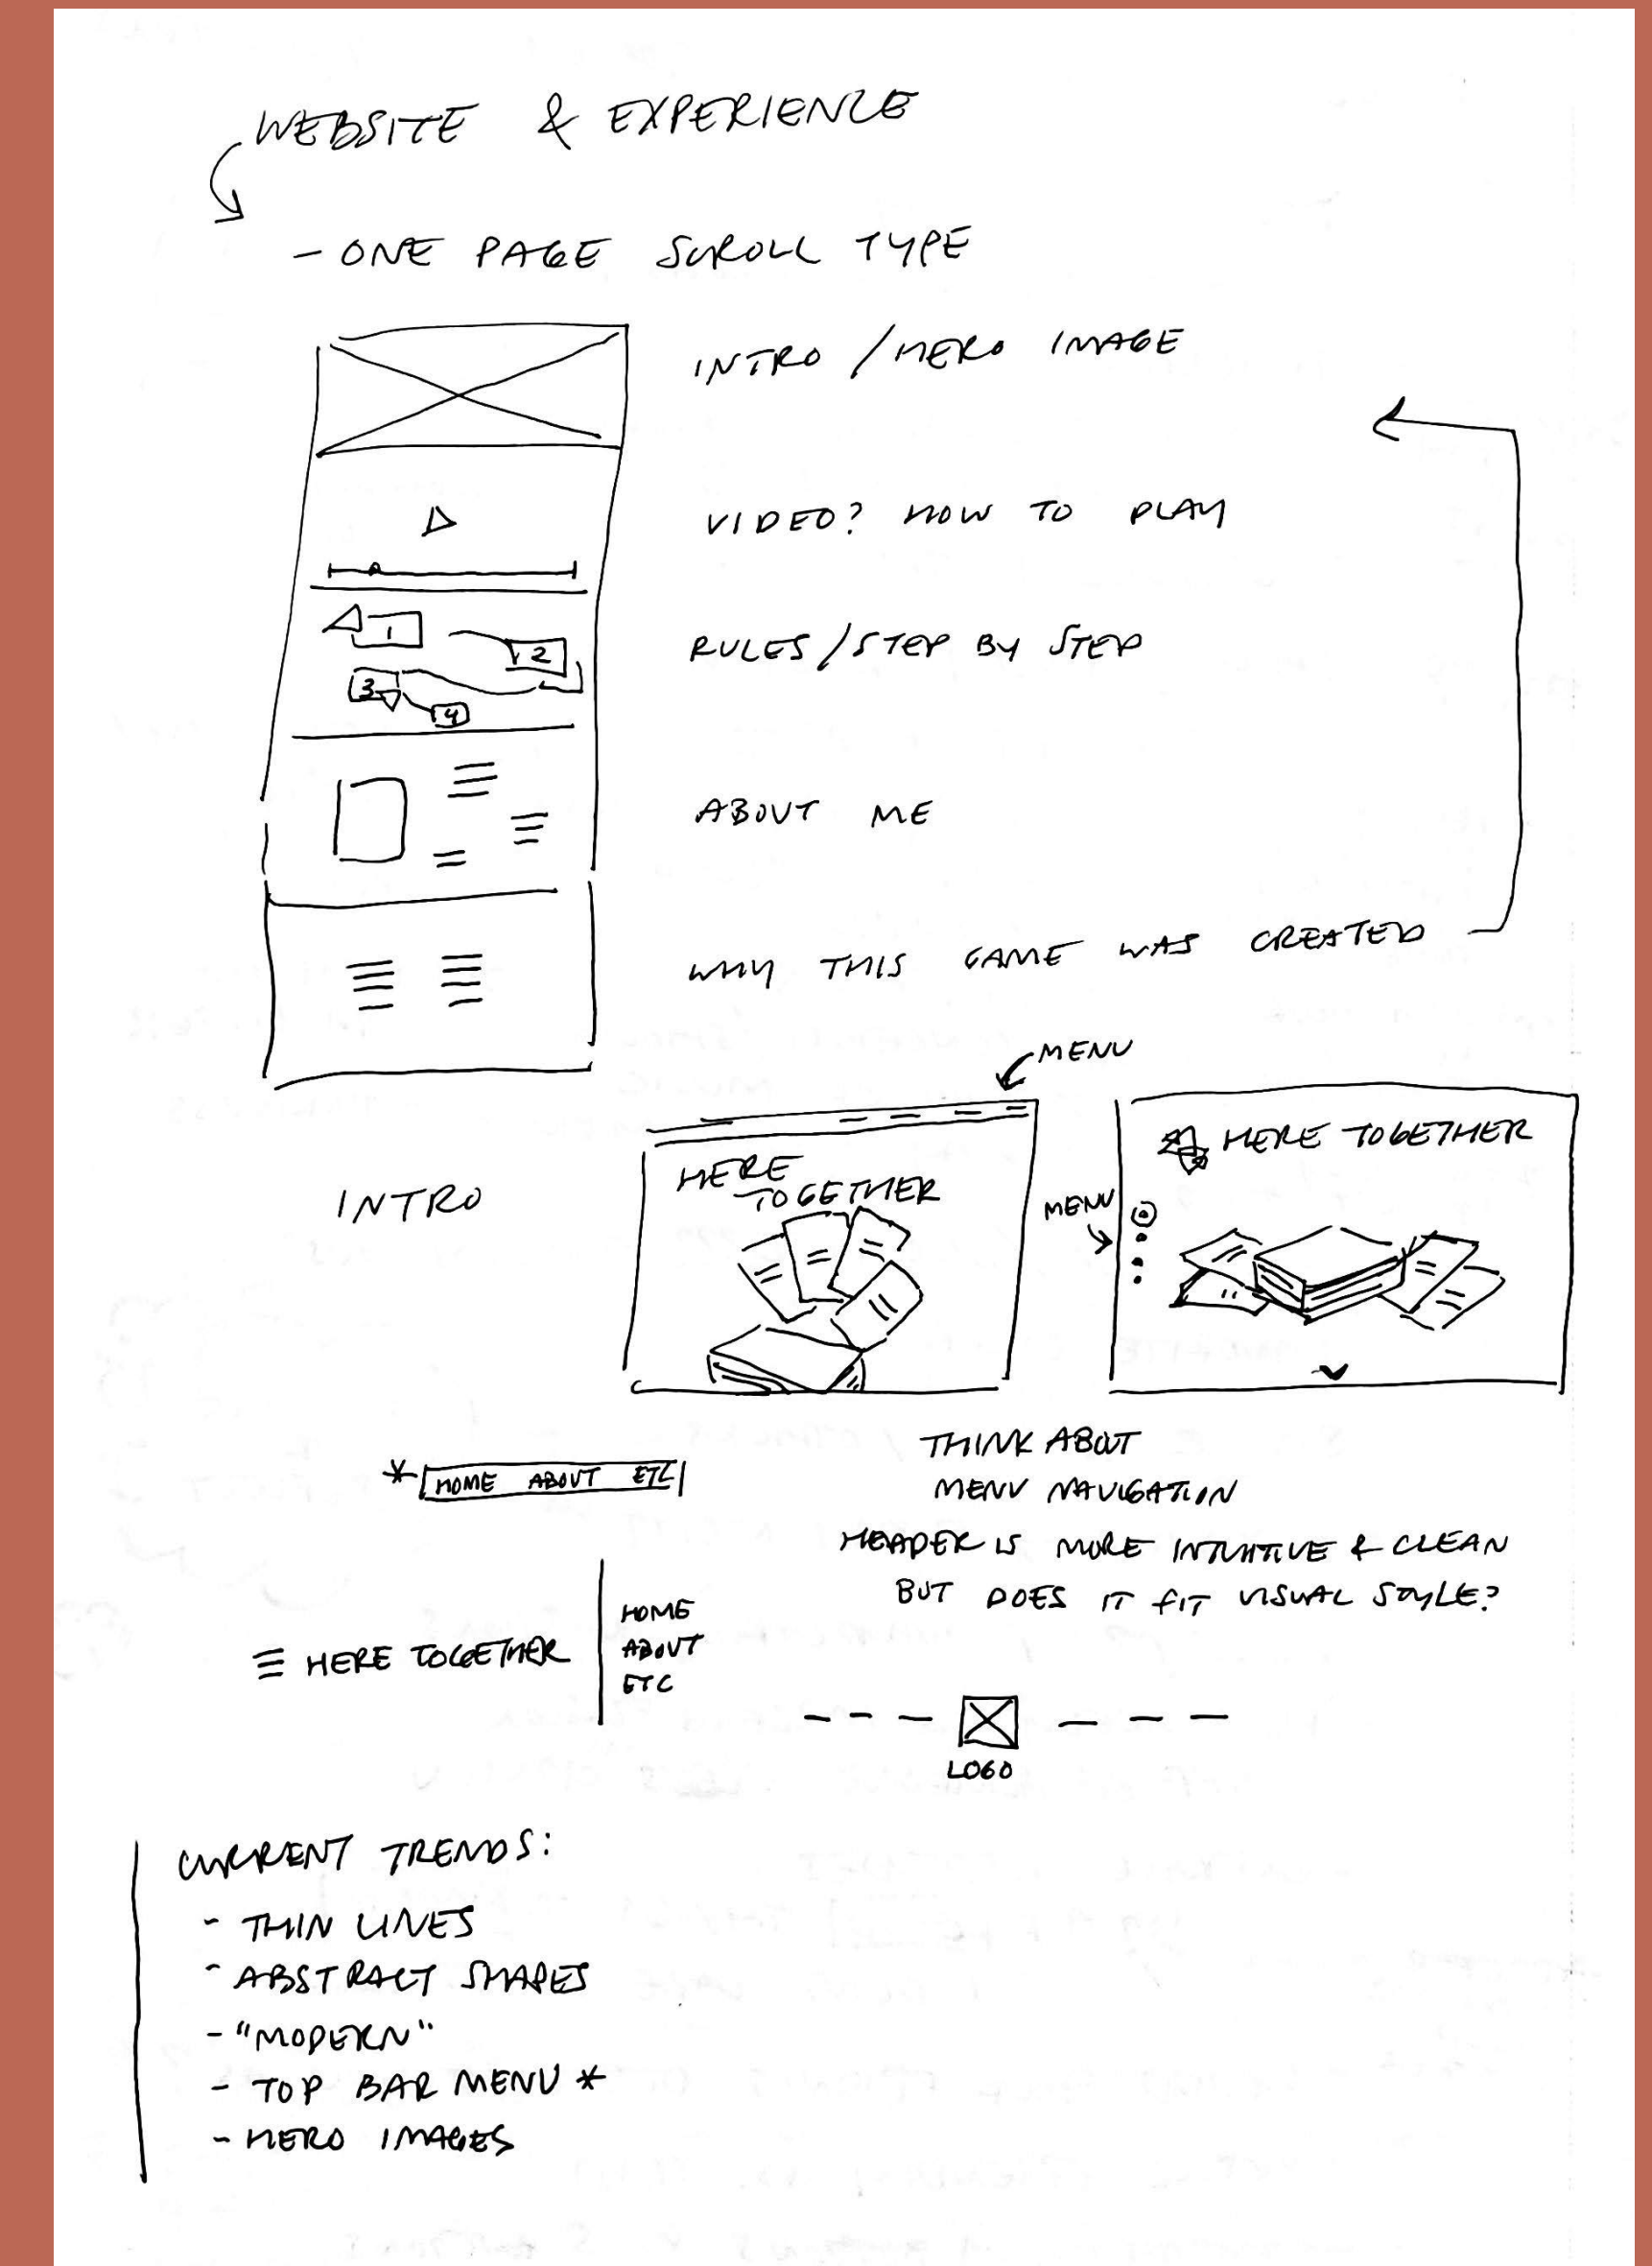 WEBSITE & EXPERIENCE
- ONE PAGE SCROLL TYPE
INTRO / HERO IMAGE
VIDEO? HOW TO PLAY
1
2
3
4
RULES / STEP BY STEP
ABOUT ME
WHY THIS GAME WAS CREATED
MENU
INTRO
HERE
TOGETHER
MENU
HERE TOGETHER
THINK ABOUT
MENU NAVIGATION
* HOME ABOUT ETC
HEADER IS MORE INTUITIVE & CLEAN
BUT DOES IT FIT VISUAL STYLE?
HERE TOGETHER
HOME
ABOUT
ETC
LOGO
CURRENT TRENDS:
- THIN LINES
- ABSTRACT SHAPES
- "MODERN"
- TOP BAR MENU *
- HERO IMAGES